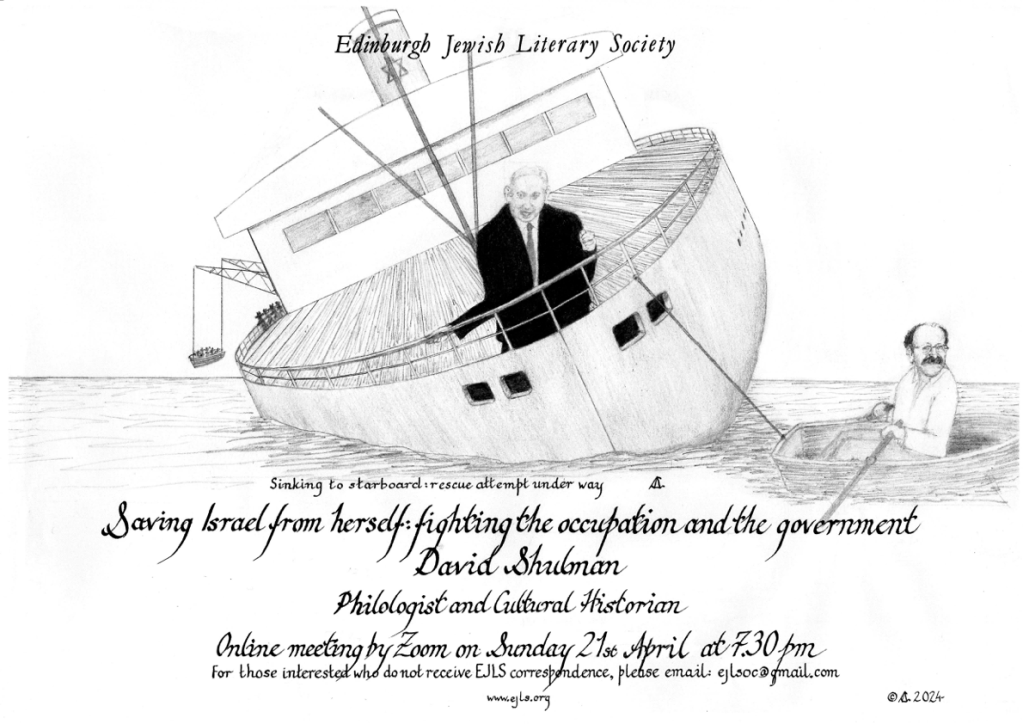 Edinburgh Jewish Literary Society
Sinking to starboard: rescue attempt under way
Saving Israel from herself: fighting the occupation and the government
David Shulman
Philologist and Cultural Historian
Online meeting by Zoom on Sunday 21st April at 7.30 pm
For those interested who do not receive EJLS correspondence, please email: ejlsoc@gmail.com
www.ejls.org
© 2024